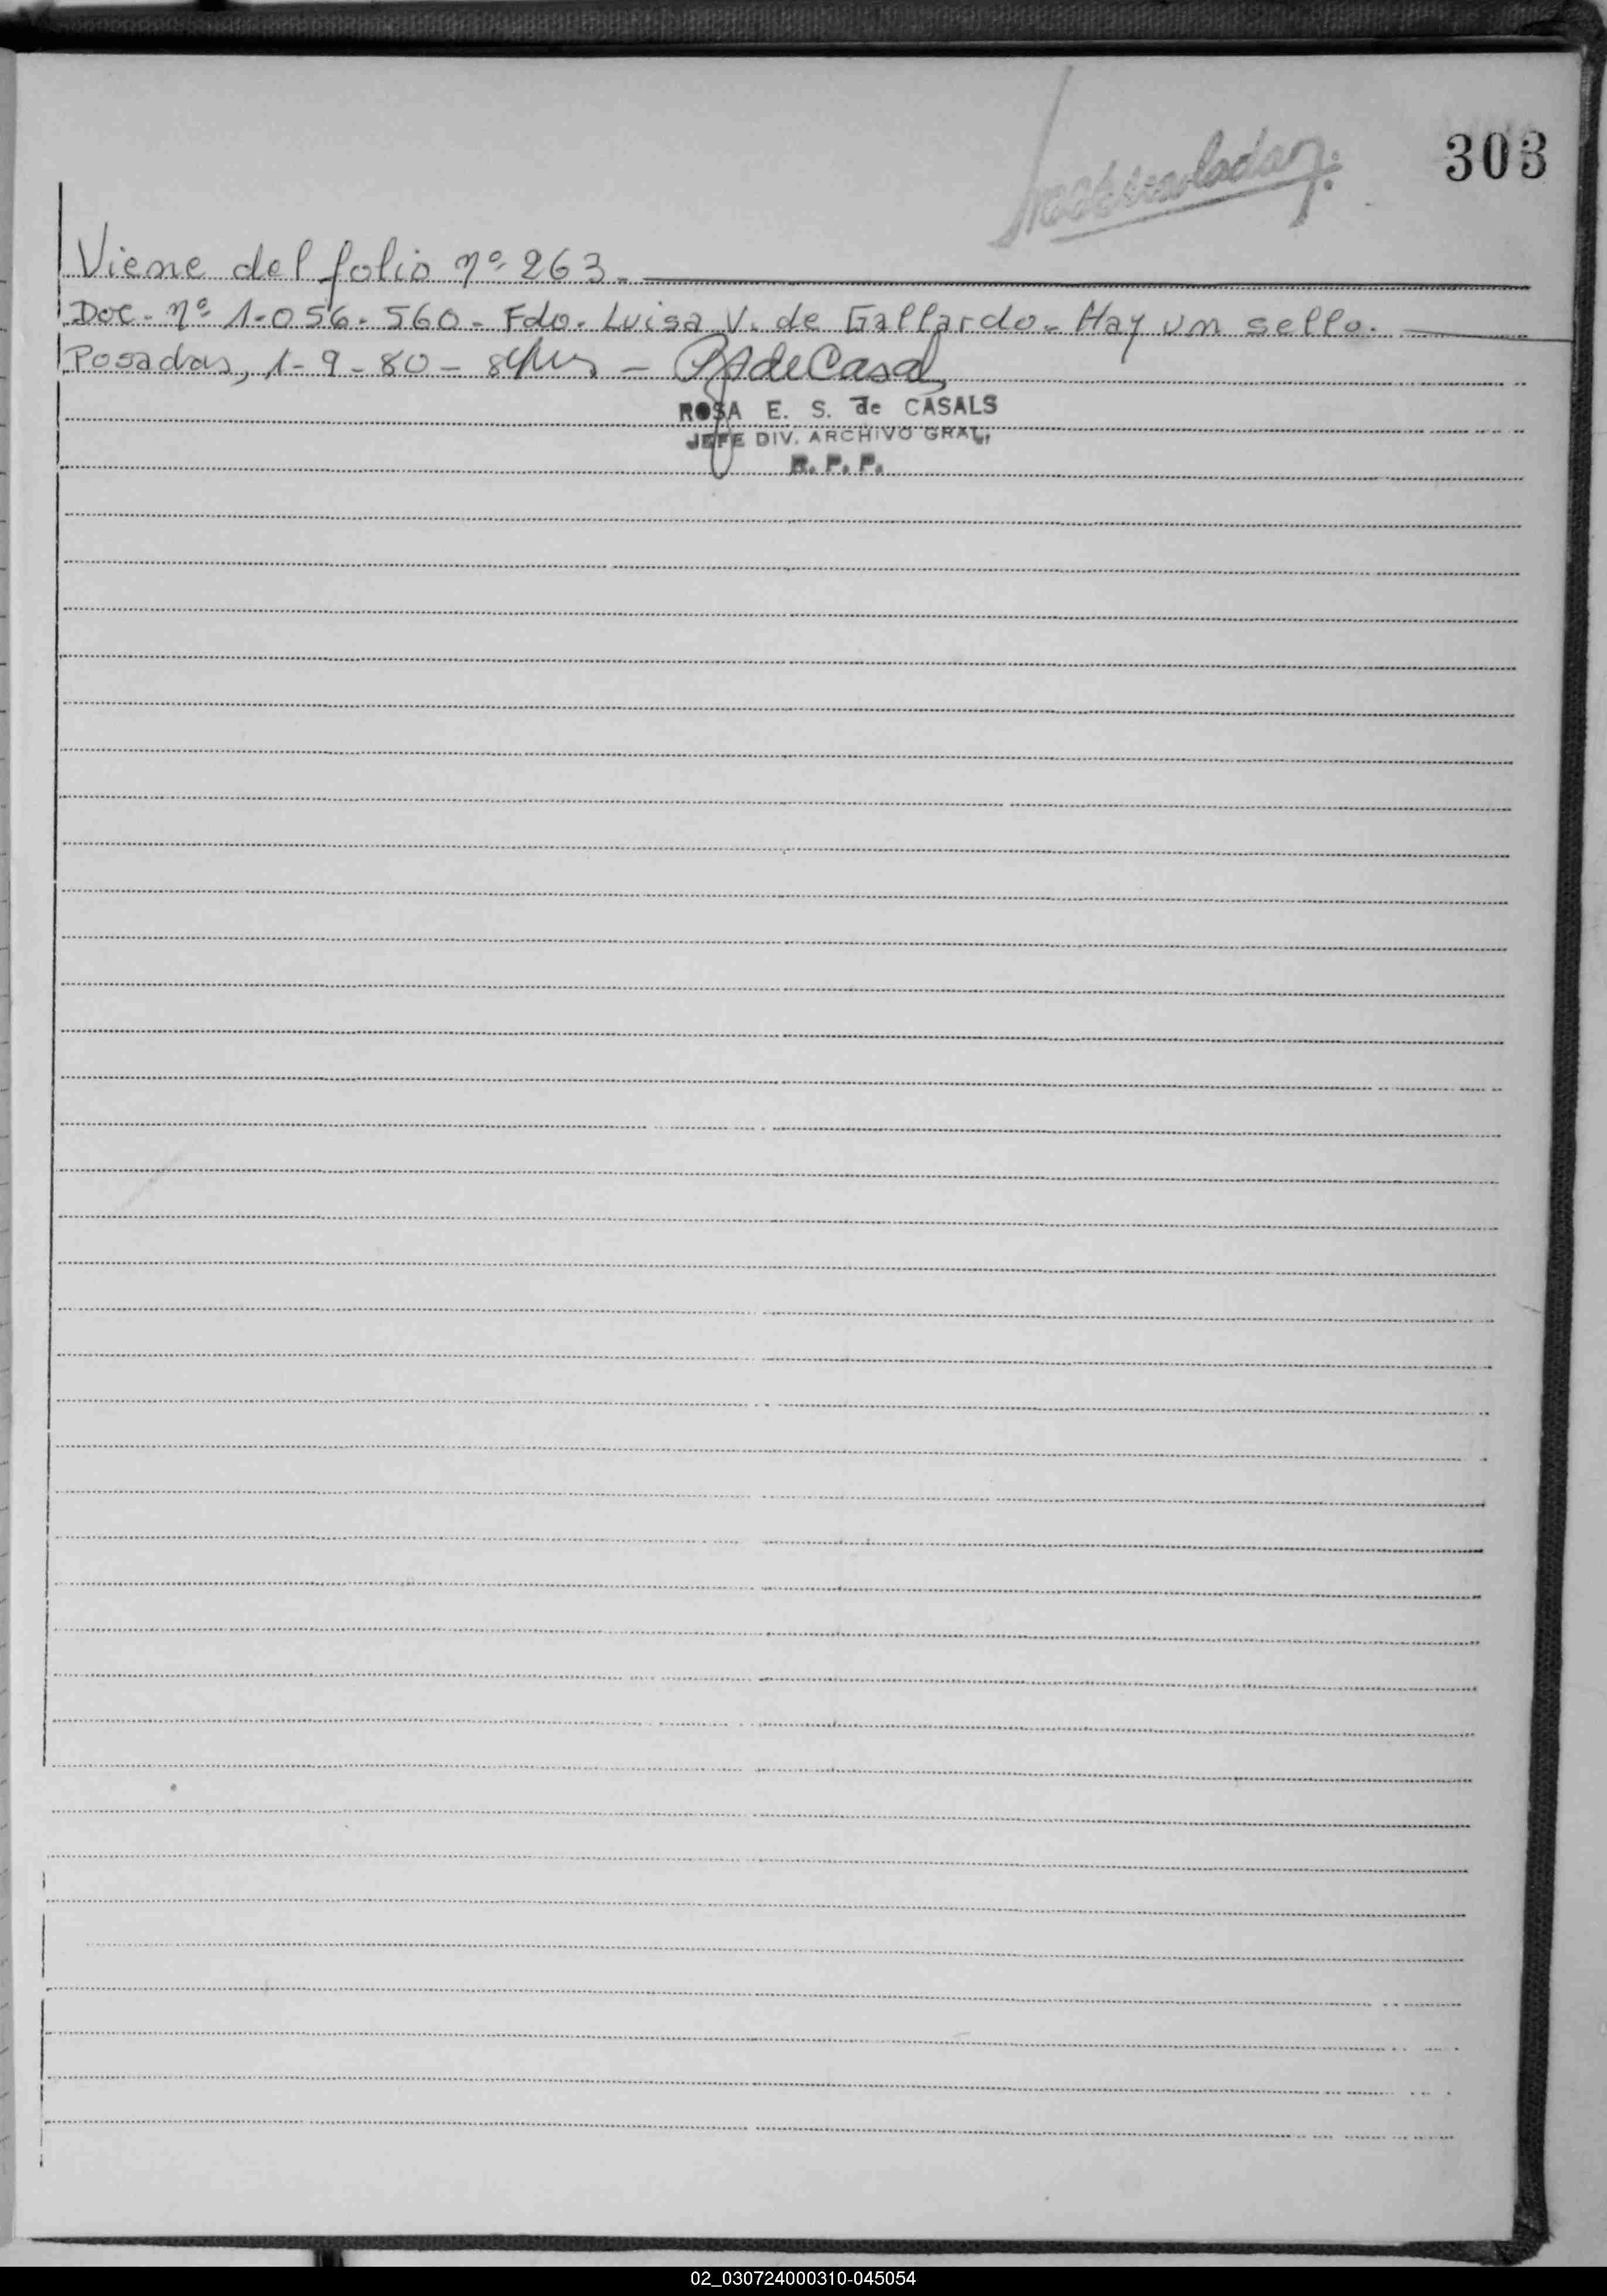 303
Viene del folio nº 263.
Doc. nº 1.056.560. Fdo. Luisa V. de Gallardo. Hay un sello.
Posadas, 1-9-80 -
ROSA E. S. de CASALS
JEFE DIV. ARCHIVO GRAL.
R. P. P.
02_030724000310-045054